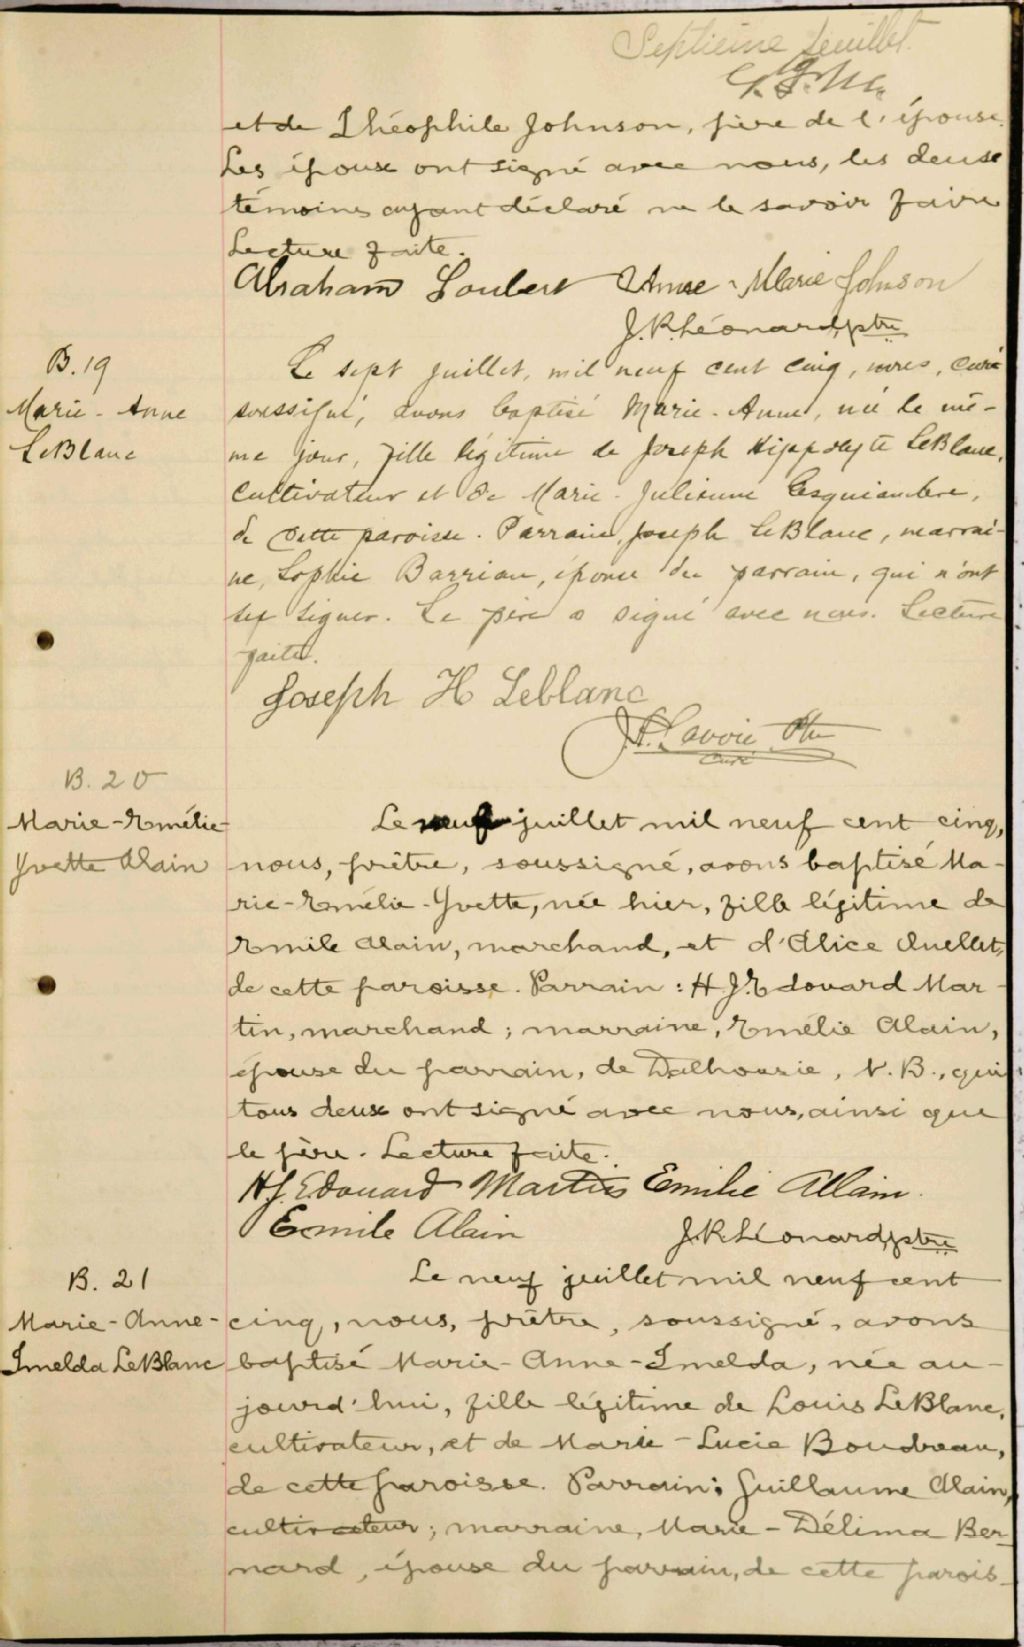 Septième feuillet.
et de Théophile Johnson, père de l'épouse.
Les époux ont signé avec nous, les deux
témoins ayant déclaré ne le savoir faire
Lecture faite.
Abraham Loubert Anne-Marie Johnson
J.R. Léonard, ptre
B. 19
Marie-Anne
LeBlanc
Le sept juillet, mil neuf cent cinq, nous, curé
soussigné, avons baptisé Marie-Anne, née le mê-
me jour, fille légitime de Joseph Hippolyte LeBlanc,
cultivateur et de Marie-Julienne
de cette paroisse. Parrain, Joseph LeBlanc, marrai-
ne, Sophie épouse du parrain, qui n'ont
su signer. Le père a signé avec nous. Lecture
faite.
Joseph H Leblanc
Savoie Ptre
curé
B. 20
Marie-Emélie-
Yvette Alain
Le neuf juillet mil neuf cent cinq,
nous, prêtre, soussigné, avons baptisé Ma-
rie-Emélie-Yvette, née hier, fille légitime de
Emile Alain, marchand, et d'Alice Ouellet,
de cette paroisse. Parrain: H.J. Edouard Mar-
tin, marchand; marraine, Emélie Alain,
épouse du parrain, de Dalhousie, N.B., qui
tous deux ont signé avec nous, ainsi que
le père. Lecture faite.
H.J. Edouard Martin Emilie Allain.
Emile Alain J.R. Léonard, ptre
B. 21
Marie-Anne-
Imelda LeBlanc
Le neuf juillet mil neuf cent
cinq, nous, prêtre, soussigné, avons
baptisé Marie-Anne-Imelda, née au-
jourd'hui, fille légitime de Louis LeBlanc,
cultivateur, et de Marie-Lucie Boudreau,
de cette paroisse. Parrain: Guillaume Alain,
cultivateur; marraine, Marie-Délima Ber-
nard, épouse du parrain, de cette parois-